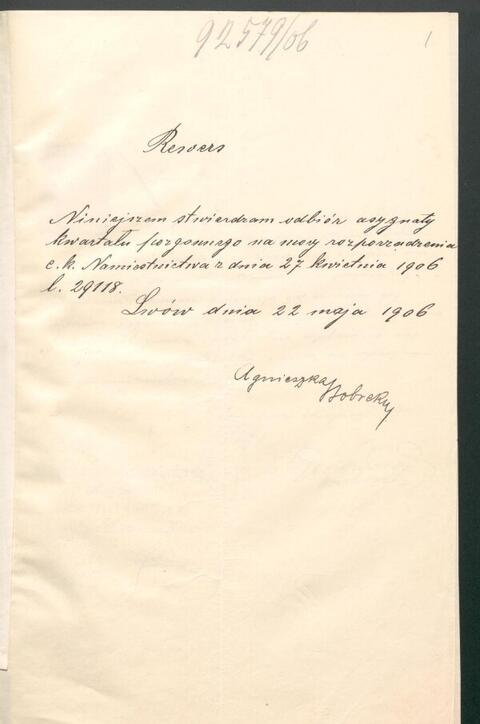 92579/06
1
Rewers
Niniejszem stwierdzam odbiór asygnaty
kwartału pozgonnego na mocy rozporządzenia
c. k. Namiestnictwa z dnia 27 kwietnia 1906
l. 29118.
Lwów dnia 22 maja 1906
Agnieszka